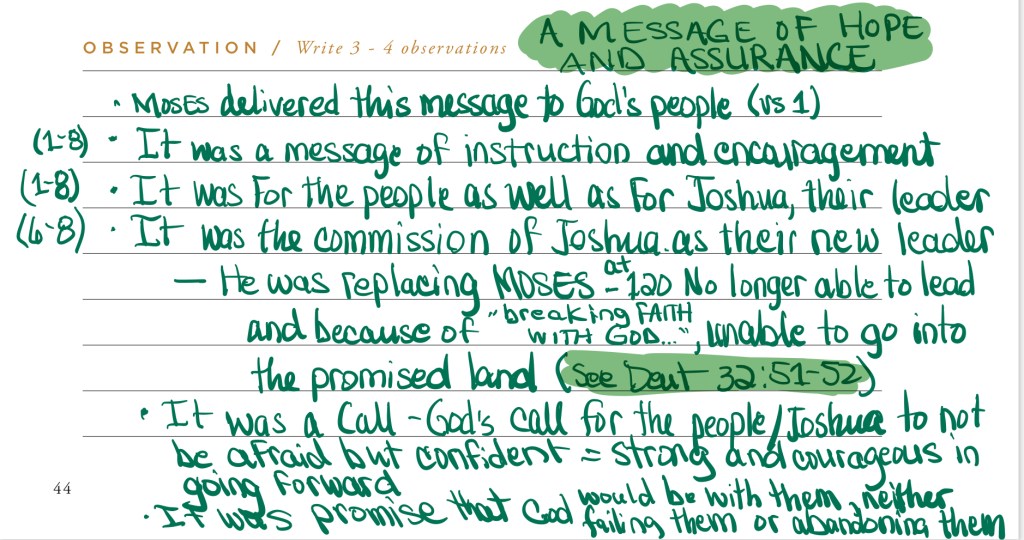 OBSERVATION / Write 3 - 4 observations
A MESSAGE OF HOPE
AND ASSURANCE
• MOSES delivered this message to God's people (vs 1)
(1-8) • It was a message of instruction and encouragement
(1-8) • It was For the people as well as For Joshua, their leader
(6-8) • It was the commission of Joshua as their new leader
— He was replacing MOSES - at 120 No longer able to lead
and because of "breaking FAITH
WITH GOD...", unable to go into
the promised land (See Deut 32:51-52)
• It was a Call - God's call for the people/Joshua to not
be afraid but confident = strong and courageous in
going forward
• It was promise that God would be with them, neither
failing them or abandoning them
44